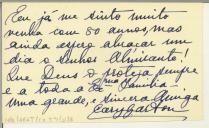 Eu já me sinto muito
velha com 80 annos, mas
ainda espero abraçar um
dia o Senhor Almirante!
Que Deus o proteja sempre
e a toda a Exma Familia
Uma grande, e sincera Amiga